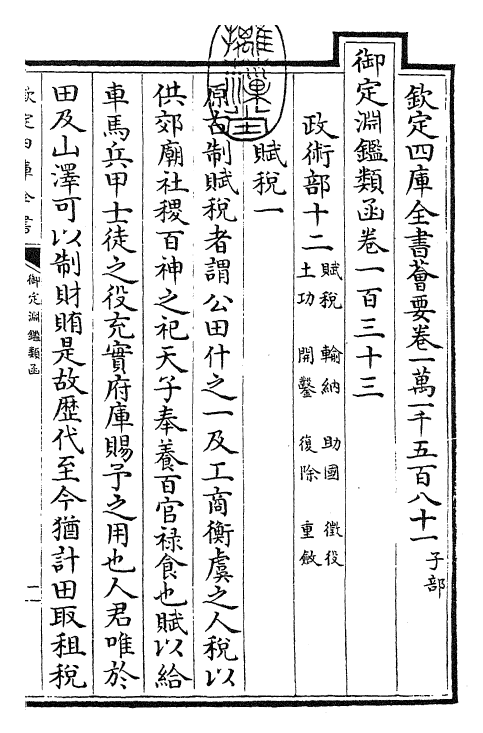 欽定四庫全書薈要卷一萬一千五百八十一子部
御定淵鑑類函卷一百三十三
政術部十二賦稅 輸納 助國 徵役
土功 開鑿 復除 重斂
賦稅一
原古制賦稅者謂公田什之一及工商衡虞之人稅以
供郊廟社稷百神之祀天子奉養百官禄食也賦以給
車馬兵甲士徒之役充實府庫賜予之用也人君唯於
田及山澤可以制財賄是故歴代至今猶計田取租稅
欽定四庫全書
御定淵鑑類函
一